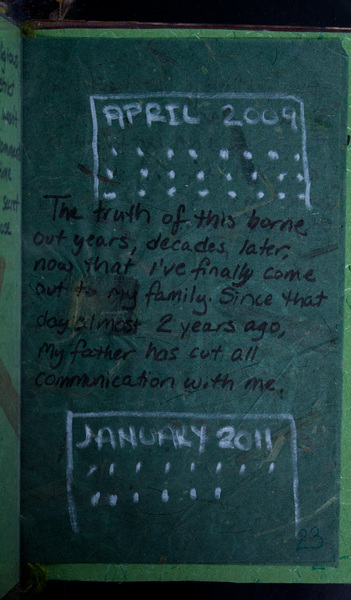 APRIL 2009
The truth of this borne
out years, decades, later,
now that i've finally come
out to my family. Since that
day almost 2 years ago,
my father has cut all
communication with me.
JANUARY 2011
23
secret